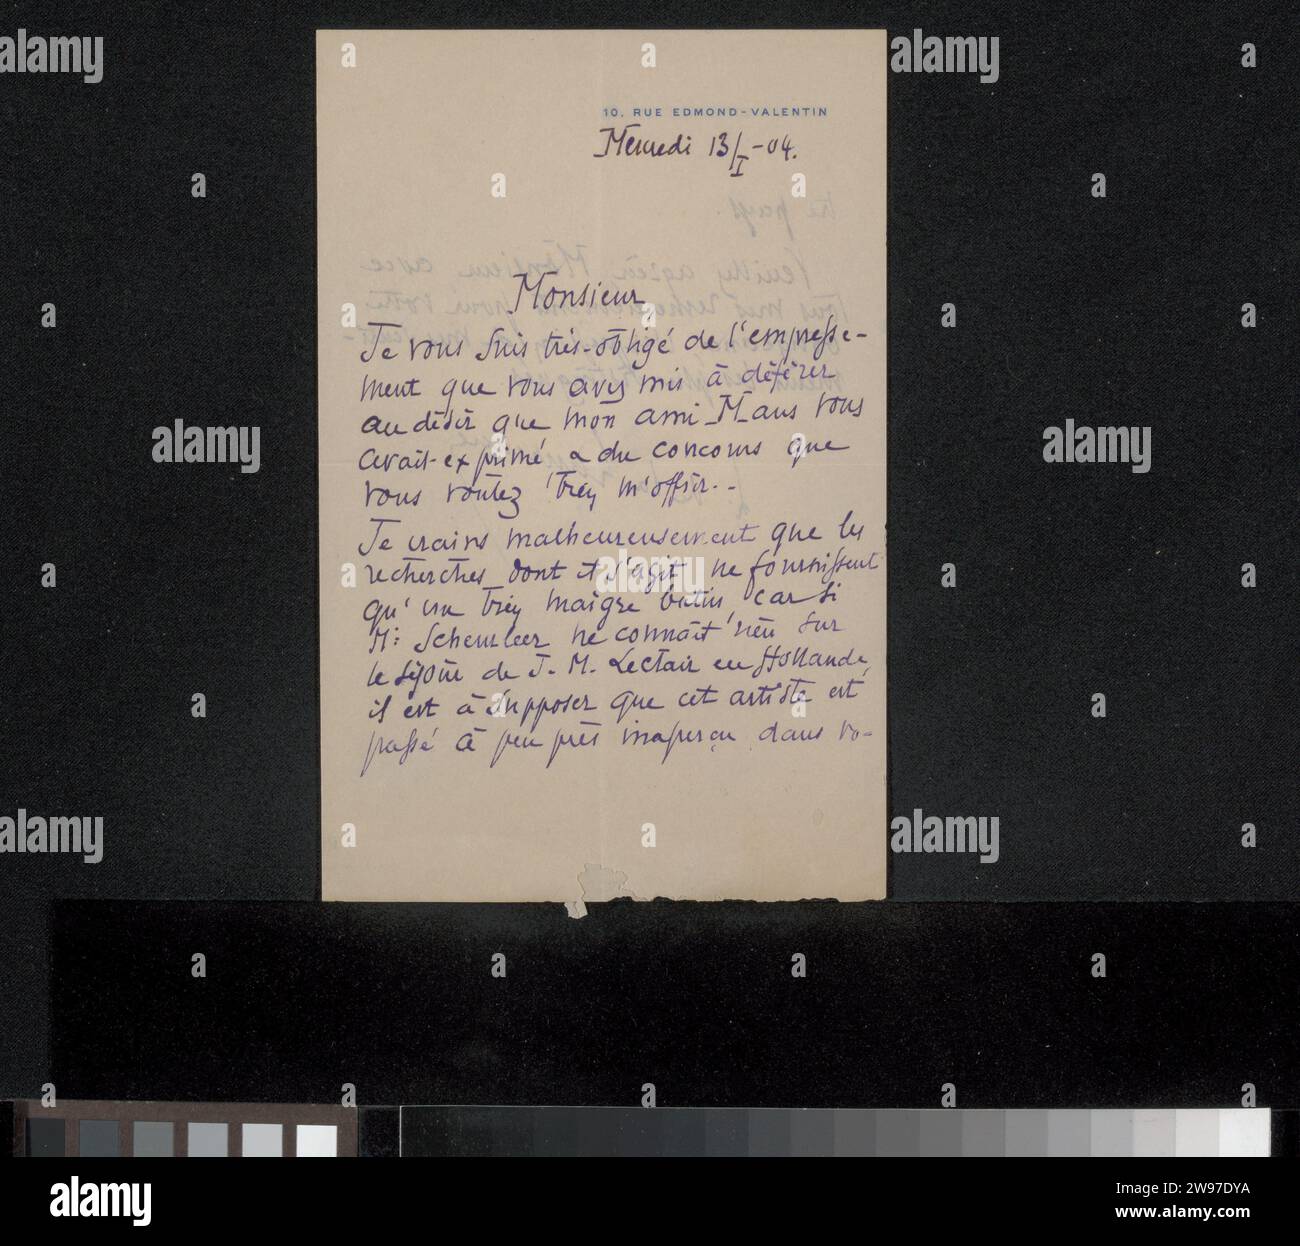 10. RUE EDMOND-VALENTIN
Mercredi 13/I-04.
Monsieur,
Je vous suis très-obligé de l'empresse-
ment que vous avez mis à déférer
au désir que mon ami Maus vous
avait exprimé & du concours que
vous voulez bien m'offrir..
Je crains malheureusement que les
recherches dont il s'agit ne fournissent
qu'un bien maigre butin, car si
Mr Scheurleer ne connaît rien sur
le séjour de J. M. Leclair en Hollande,
il est à supposer que cet artiste est
passé à peu près inaperçu dans vo-
tre pays.
Veuillez agréer Monsieur avec
tous mes remerciements pour votre
alamy
Image ID: 2W97DYA
www.alamy.com